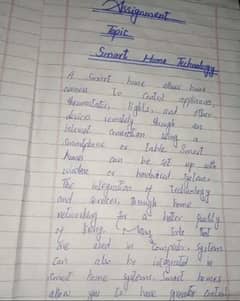 Assignment
Topic
Smart Home Technology
A smart home allows home
owners to control appliances,
thermostats, lights, and other
devices remotely through an
internet connection using
smartphone or table. Smart
homes can be set up with
wireless or hardwired systems.
The integration of technology
and services, through home
networking for a better quality
of living. Many tools that
are used in computer systems
can also be integrated in
smart home systems. Smart homes
allow you to have greater control